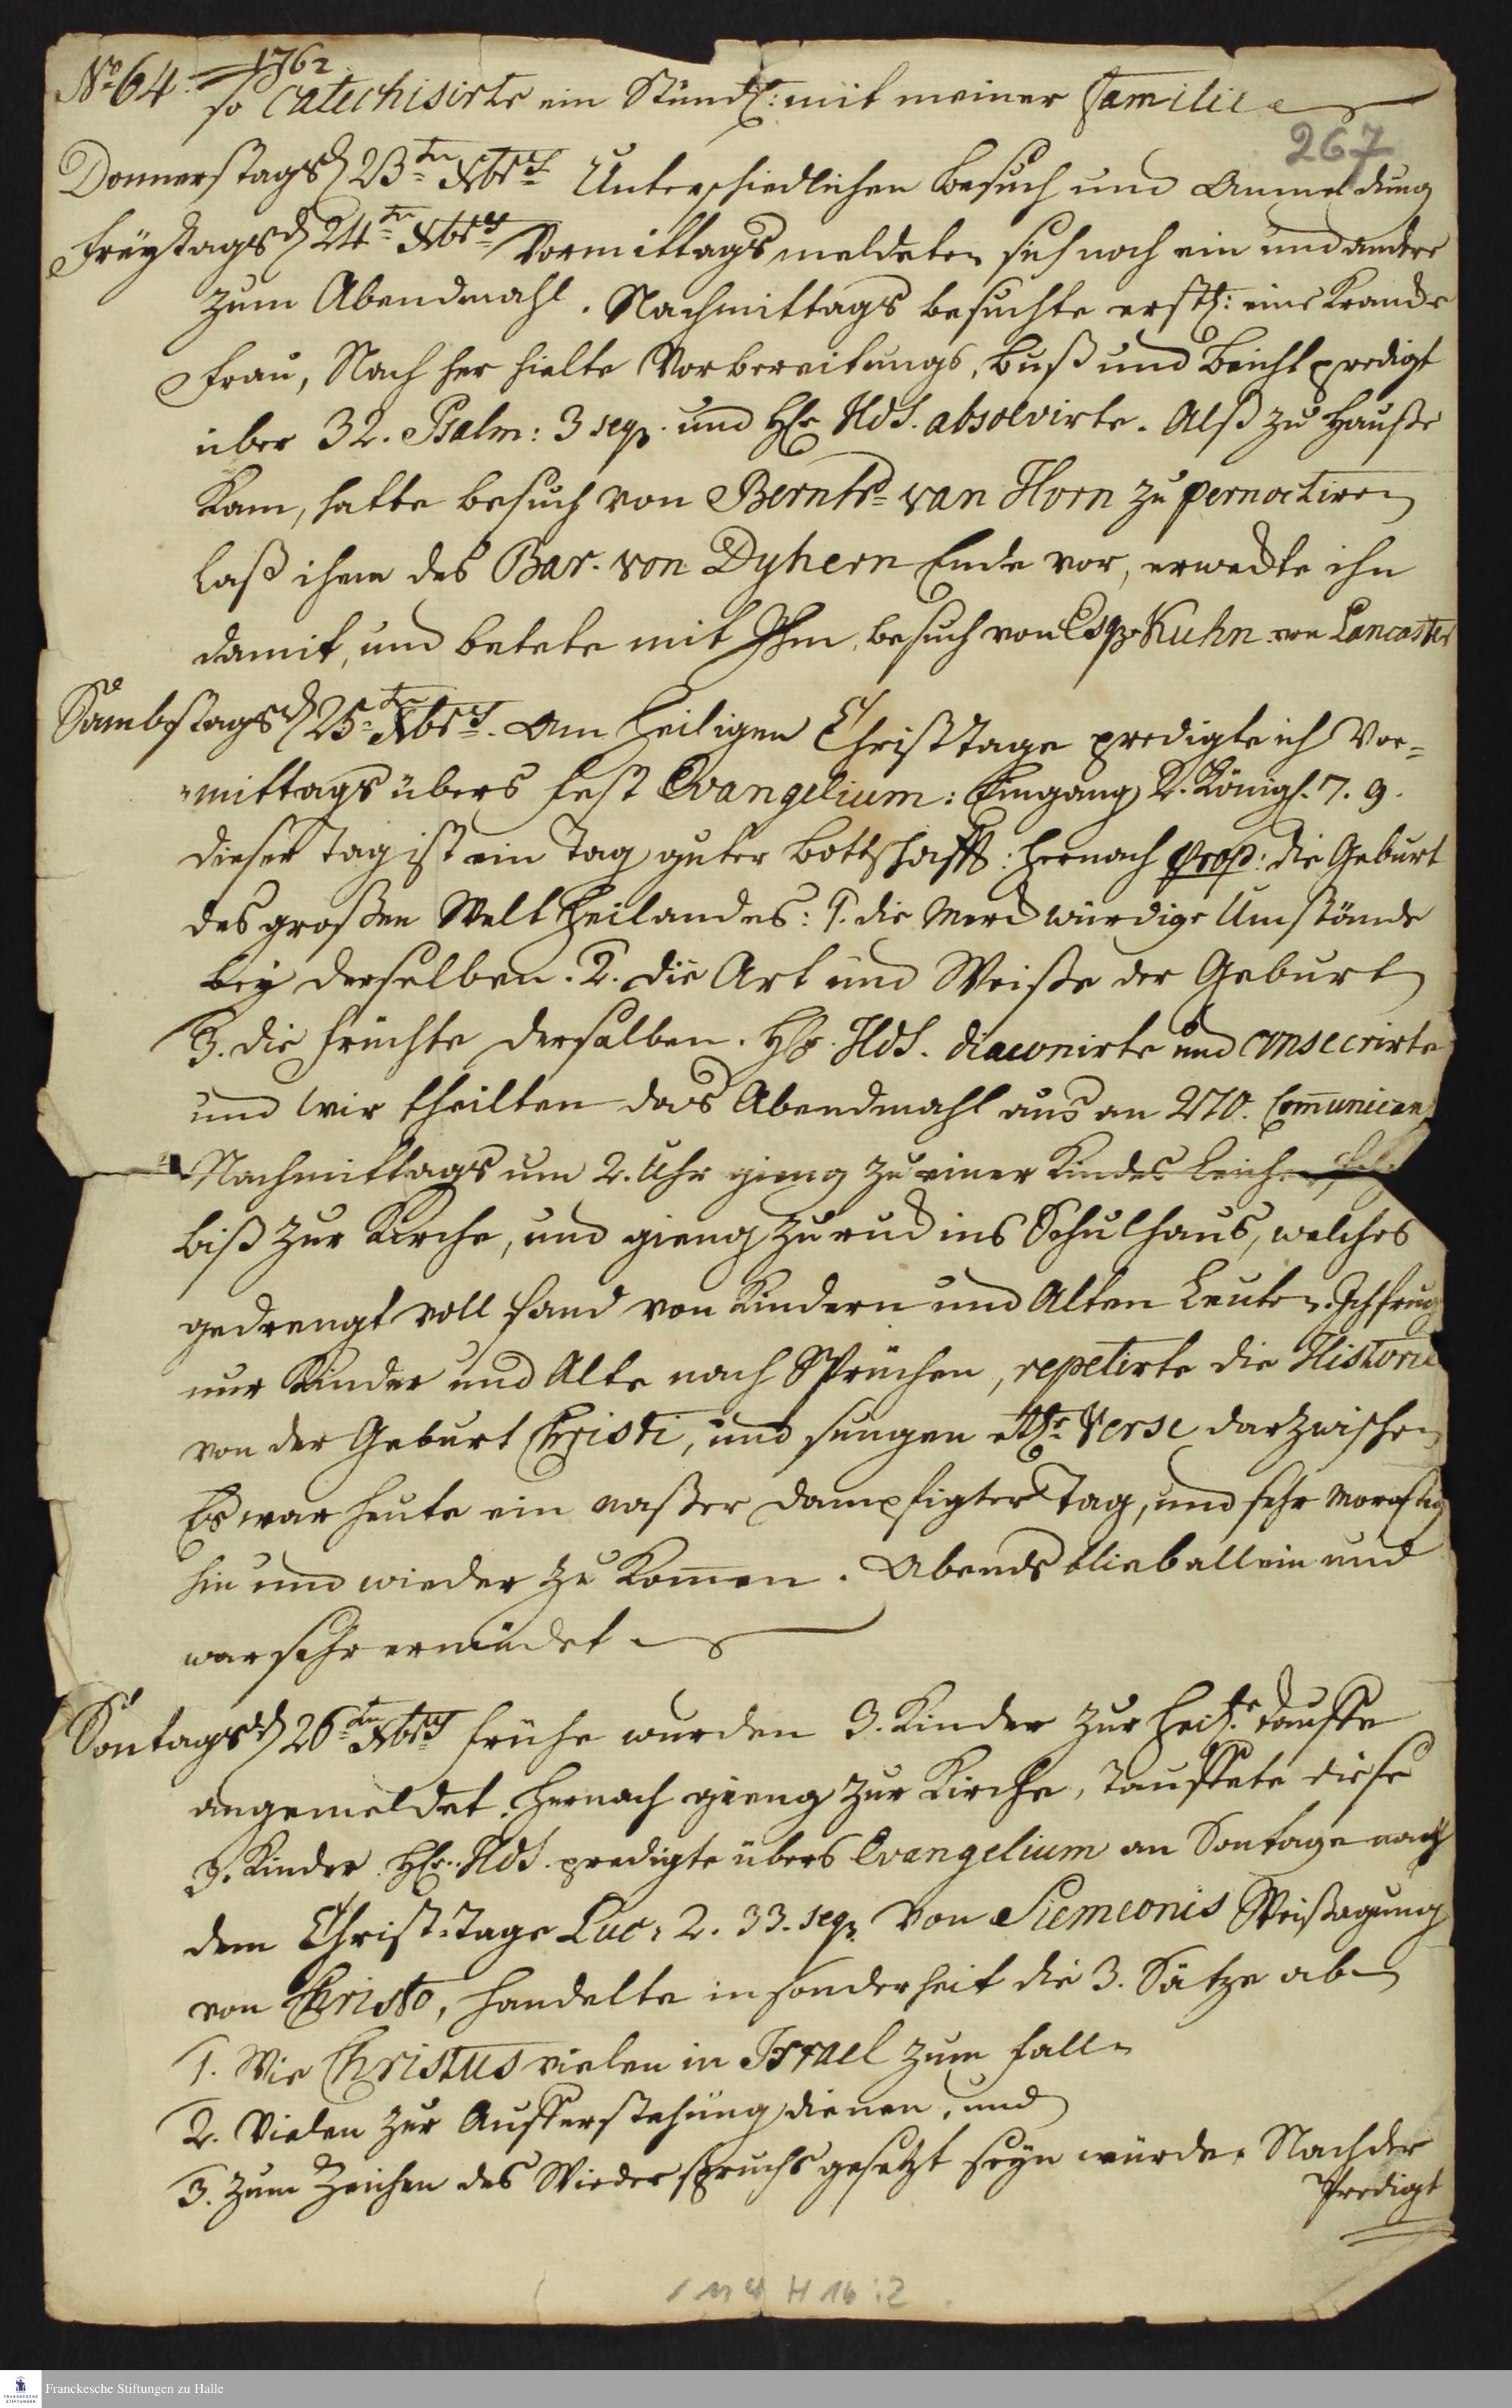 No 64. 1762
so catechisirte ein Stündl: mit meiner Familie
267
Donnerstags d 23tn Xbris Unterschiedlichen Besuch und Anmeldung
Freytags d 24tn Xbris Vormittags meldeten sich noch ein und andere
zum Abendmahl. Nachmittags besuchte erstl: eine Krancke
Frau, Nach her hielte Vorbereitungs, Buß und Beicht predigt
über 32. Psalm: 3 seq. und HEr Hds. absolvirte. Alß zu Hauße
Kam, hatte Besuch von Berntd van Horn zu pernoctiren
laß ihm des Bar. von Dyhern Ende vor, erweckte ihn
damit, und betete mit Ihm, besuch von Esqr Kuhn von Lancaster
Sambstags d 25tn Xbris. Am Heiligen Christtage predigte ich Vor=
mittags übers Fest Evangelium: Eingang 2. Königl. 7. 9.
dieser Tag ist ein Tag guter Bottschafft: hernach prop: die Geburt
des großen Welt Heilandes: 1. die Merckwürdige Umstände
bey derselben. 2. die Art und Weiße der Geburt
3. die Früchte derselben. HEr. Hds. diaconirte und consecrirte
und wir theilten das Abendmahl aus an 270. Communican
Nachmittags um 2. Uhr gieng zu einer Kindes Leiche,
biß zur Kirche, und gieng zuruck ins Schulhaus, welches
gedrengt voll fand von Kindern und Alten Leuten. Ich frug
nur Kinder und Alte nach Sprüchen, repetirte die Historie
von der Geburt Christi, und sungen etl: Verse darzwischen
Es war heute ein naßer dampfigter Tag, und sehr morastig
hin und wieder zu Komen. Abends blieb allein und
war sehr ermüdet
Sontags d 26tn Xbris frühe wurden 3. Kinder zur Heil. Tauffe
angemeldet. Hernach gieng zur Kirche, Tauffete diese
3. Kinder. HEr. Hds. predigte übers Evangelium an Sontage nach
dem Christ=Tage Luc: 2. 33. seq. Von Siemeonis Weißagung
von Christo, handelte in sonderheit die 3. Sätze ab
1. Wie Christus vielen in Israel zum Fall
2. Vielen zur Aufferstehung dienen, und
3. zum Zeichen des Wiederspruchs gesetzt seyn würde. Nach der
Predigt
1 M 4 H 16 : 2
Franckesche Stiftungen zu Halle
FRANCKESCHE STIFTUNGEN